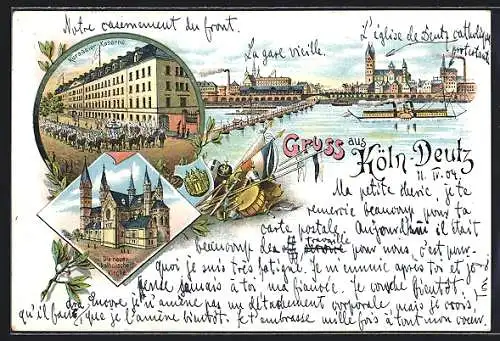 Notre casernement du front.
L'église de Deutz catholique
protestant
La gare vieille.
Kürassier-Kaserne.
Gruss aus
Köln-Deutz
11. IV. 04.
Ma petite chérie, je te
remercie beaucoup pour ta
carte postale. Aujourd'hui il était
beaucoup de travaille pour nous, c'est pour-
quoi je suis très fatigué. Je m'ennuie après toi et
pense jamais à toi, ma fiancée. Je couche bientôt.
Encore je t'amène pas un détachement corporale, mais je crois,
qu'il faut que je l'amène bientôt. Je t'embrasse mille fois à tout mon cœur.
Die neue
katholische
Kirche